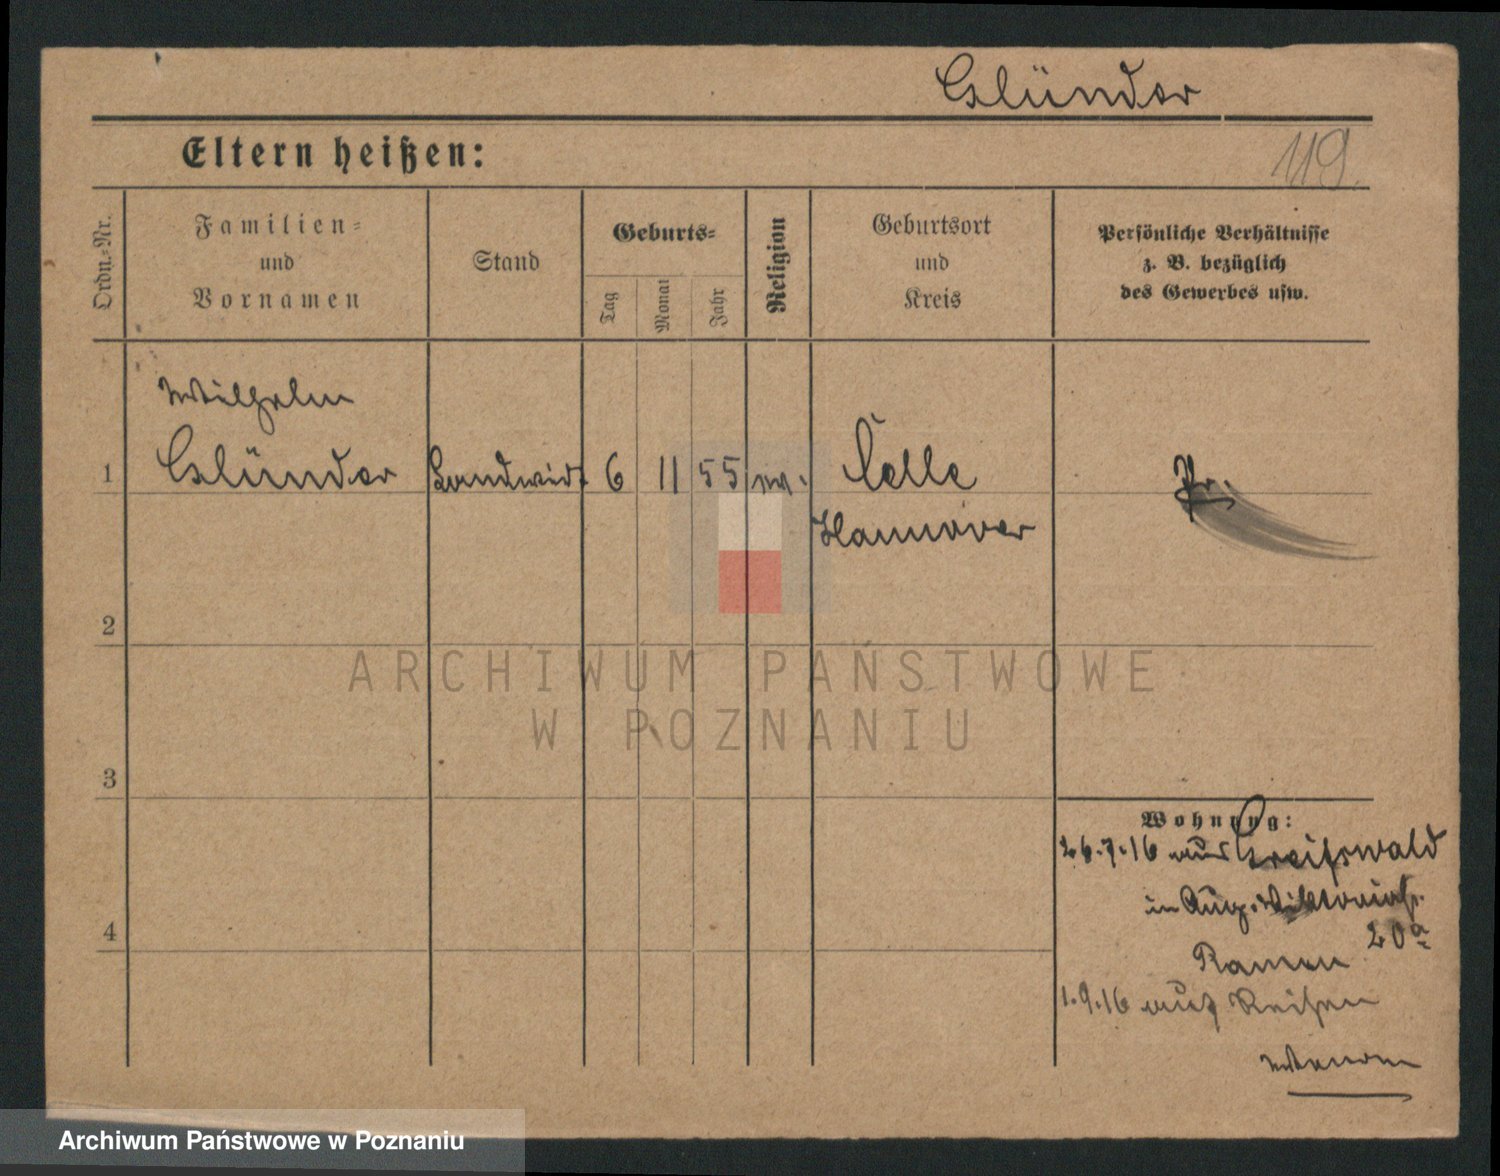 Glünder
Eltern heißen:
119.
Ordn.=Nr.
Familien=
und
Vornamen
Stand
Geburts=
Tag
Monat
Jahr
Religion
Geburtsort
und
Kreis
Persönliche Verhältnisse
z. B. bezüglich
des Gewerbes usw.
Wilhelm
1 Glünder Landwirt 6 11 55 Celle Pr.
Hannover
2
3
4
Wohnung:
26.7.16 aus Greifswald
in Aug. Viktoriast.
20a
Ramen
1.9.16 auf Reisen
ARCHIWUM PAŃSTWOWE
W POZNANIU
Archiwum Państwowe w Poznaniu